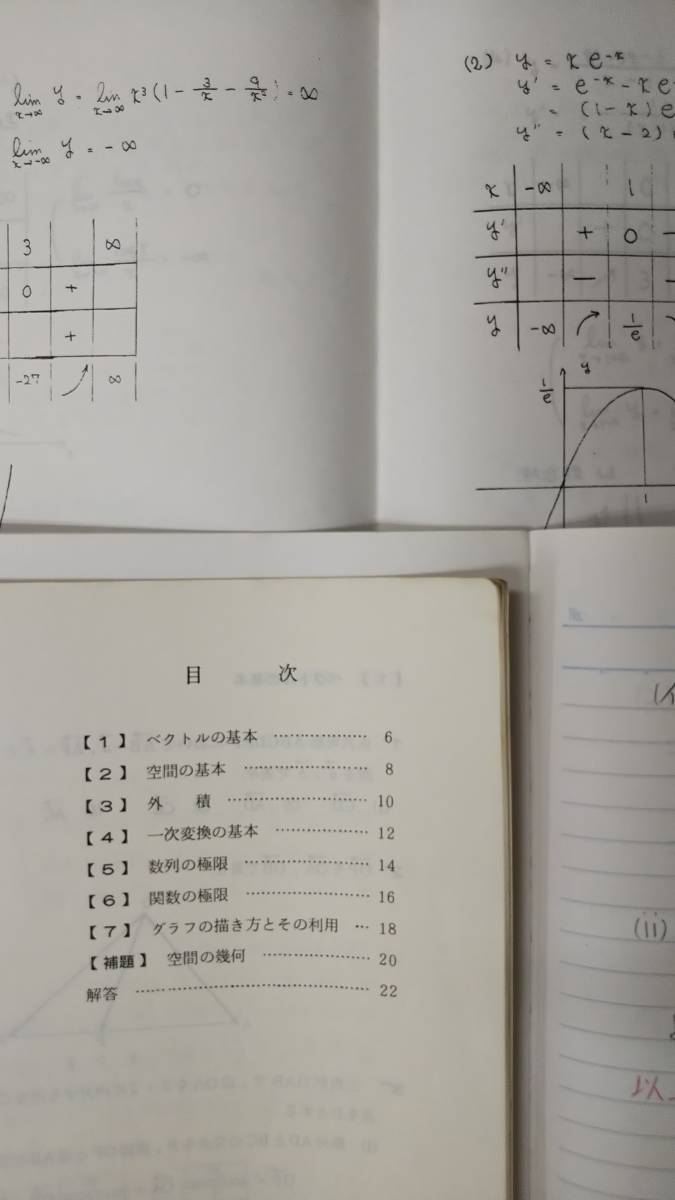 lim y = lim x³(1 - 3/x - 9/x²) = ∞
x→∞ x→∞
lim y = -∞
x→-∞
3 ∞
0 +
+
-27 ↗ ∞
(2) y = x e^-x
y' = e^-x - x e
= (1-x) e
y'' = (x-2)
x -∞ 1
y' + 0 -
y'' - -
y -∞ ↗ 1/e
y
1/e
1
目 次
【1】 ベクトルの基本 ……………… 6
【2】 空間の基本 ……………… 8
【3】 外 積 ……………… 10
【4】 一次変換の基本 ……………… 12
【5】 数列の極限 ……………… 14
【6】 関数の極限 ……………… 16
【7】 グラフの描き方とその利用 … 18
【補題】 空間の幾何 ……………… 20
解答 ……………… 22
(ii)
以上